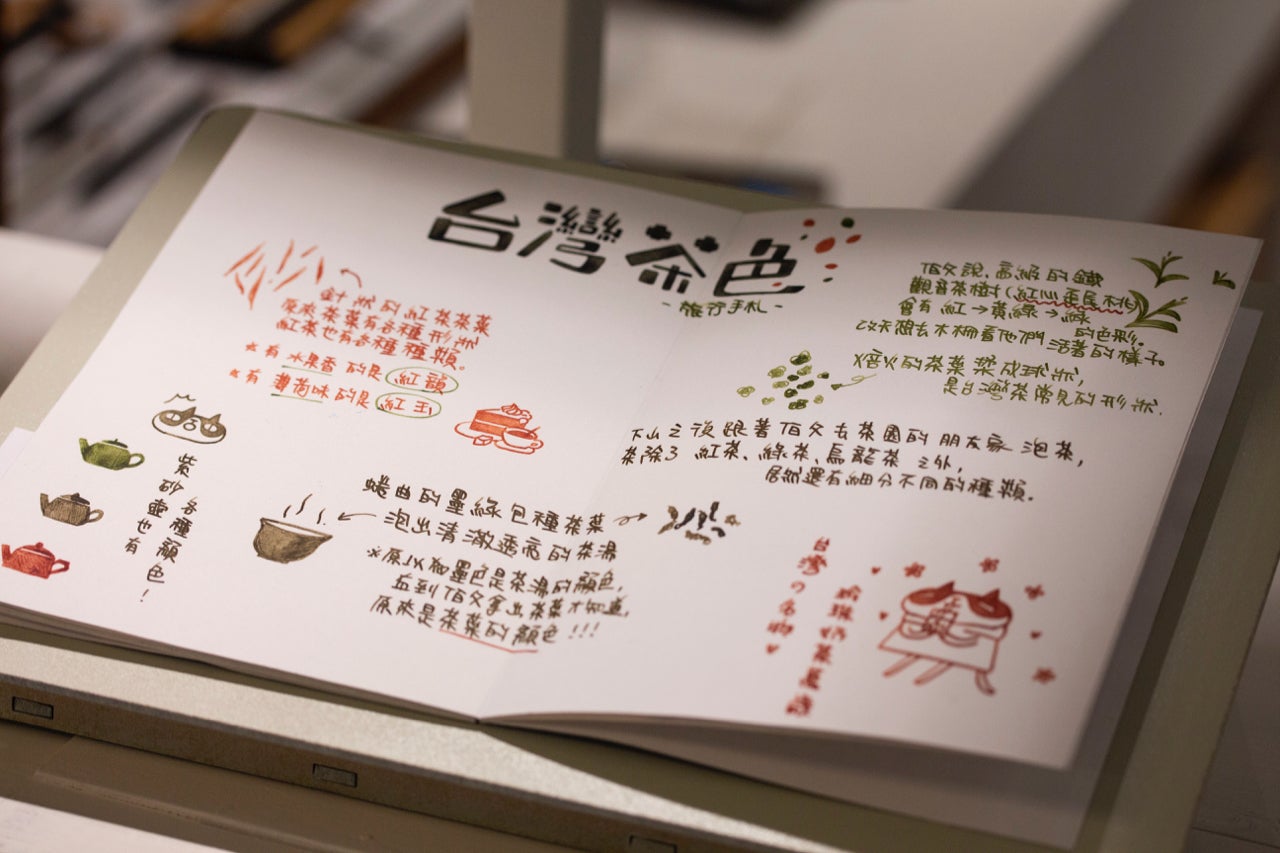 台灣茶色
-旅行手札-
針狀的紅茶茶葉
原來茶葉有各種形狀
紅茶也有各種種類。
*有 水果香 的是 紅韻
*有 薄荷味的是 紅玉
紫砂壺也有
各種顏色!
蜷曲的墨綠包種茶葉
泡出清澈透亮的茶湯
*原以為墨色是茶湯的顏色,
直到伯父拿出茶葉才知道,
原來是茶葉的顏色!!!
伯父說,高級的鐵
觀音茶樹(紅心歪尾桃)
會有紅→黃綠→綠
的色彩。
改天想去木柵看他們活著的樣子。
焙火的茶葉揉成球狀,
是台灣茶常見的形狀.
下山之後跟著伯父去茶園的朋友家泡茶,
茶除了紅茶、綠茶、烏龍茶之外,
居然還有細分不同的種類.
台灣の名物♥
珍珠奶茶